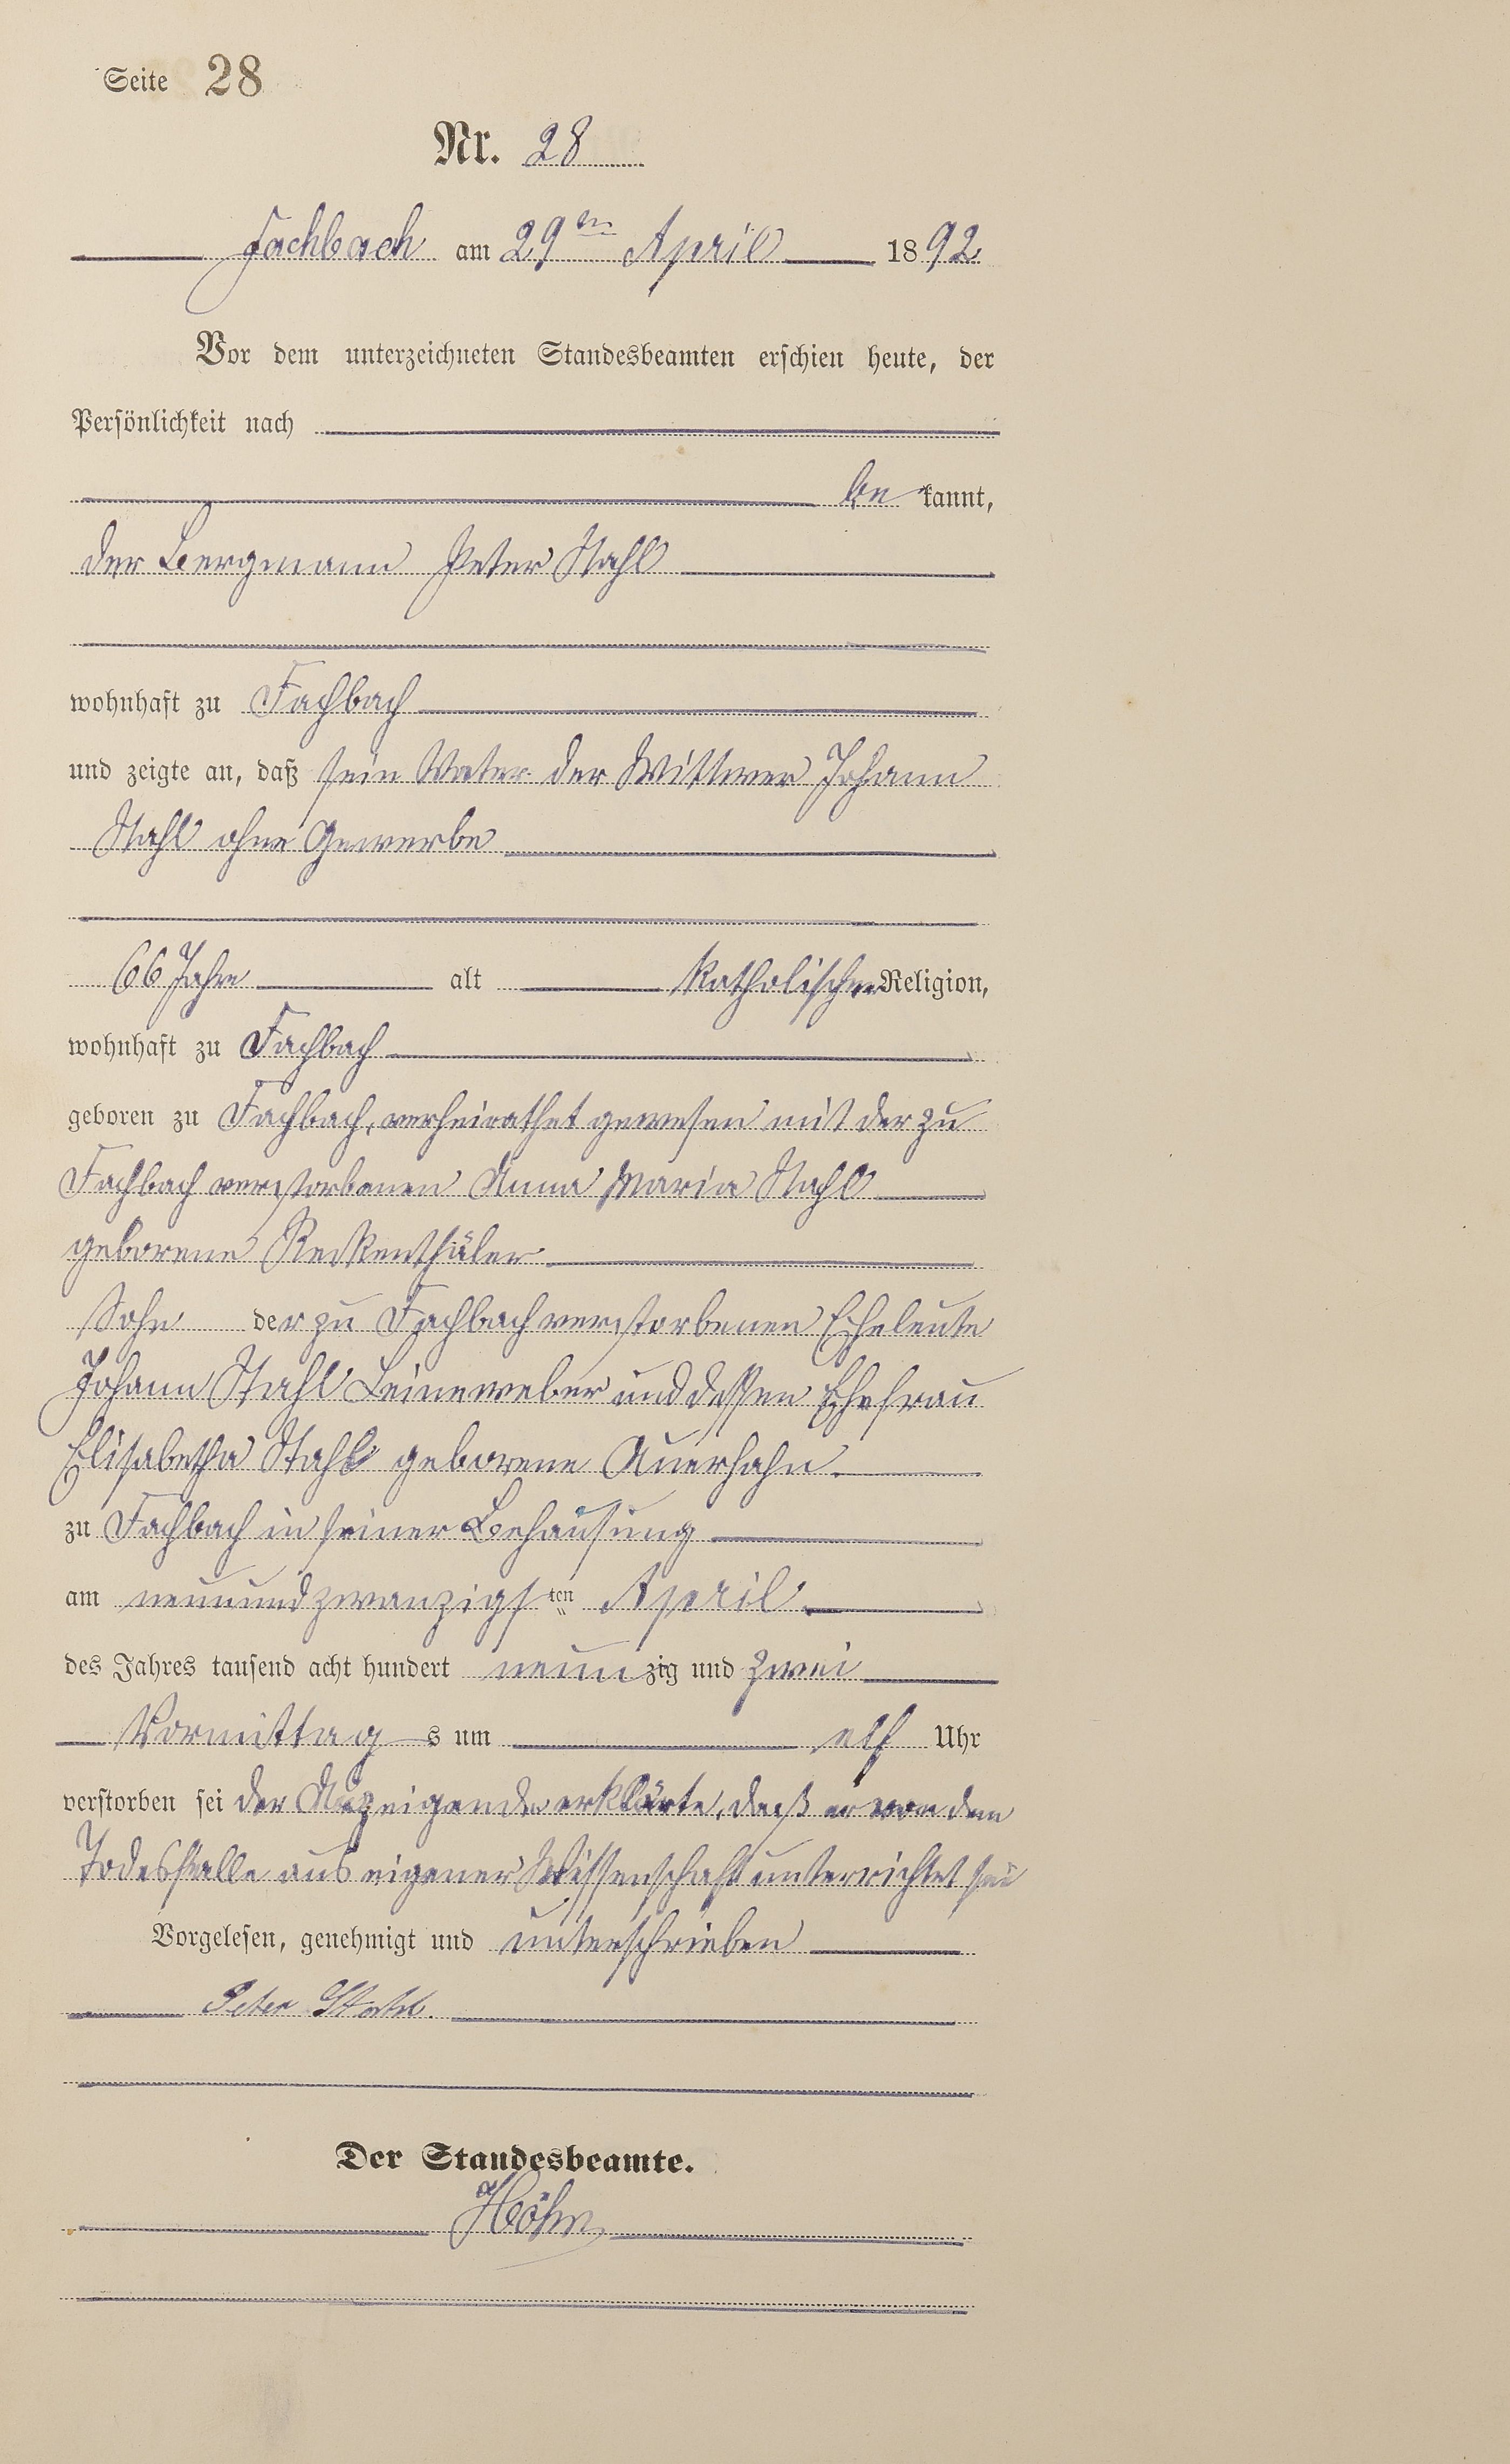 Seite 28
Nr. 28
Fachbach am 29ten April 1892
Vor dem unterzeichneten Standesbeamten erschien heute, der
Persönlichkeit nach
be kannt,
der Bergmann Peter Stahl
wohnhaft zu Fachbach
und zeigte an, daß sein Vater der Wittwer Johann
Stahl ohne Gewerbe
66 Jahre alt katholischer Religion,
wohnhaft zu Fachbach
geboren zu Fachbach, verheirathet gewesen mit der zu
Fachbach verstorbenen Anna Maria Stahl
geborene Reckenthäler
Sohn der zu Fachbach verstorbenen Eheleute
Johann Stahl Leineweber und dessen Ehefrau
Elisabetha Stahl geborene Auerhahn
zu Fachbach in seiner Behausung
am neunundzwanzigsten April
des Jahres tausend acht hundert neunzig und zwei
Vormittags um elf Uhr
verstorben sei der Anzeigende erklärte, daß er von dem
Todesfalle aus eigener Wissenschaft unterrichtet sei
Vorgelesen, genehmigt und unterschrieben
Peter Stahl.
Der Standesbeamte.
Höhn